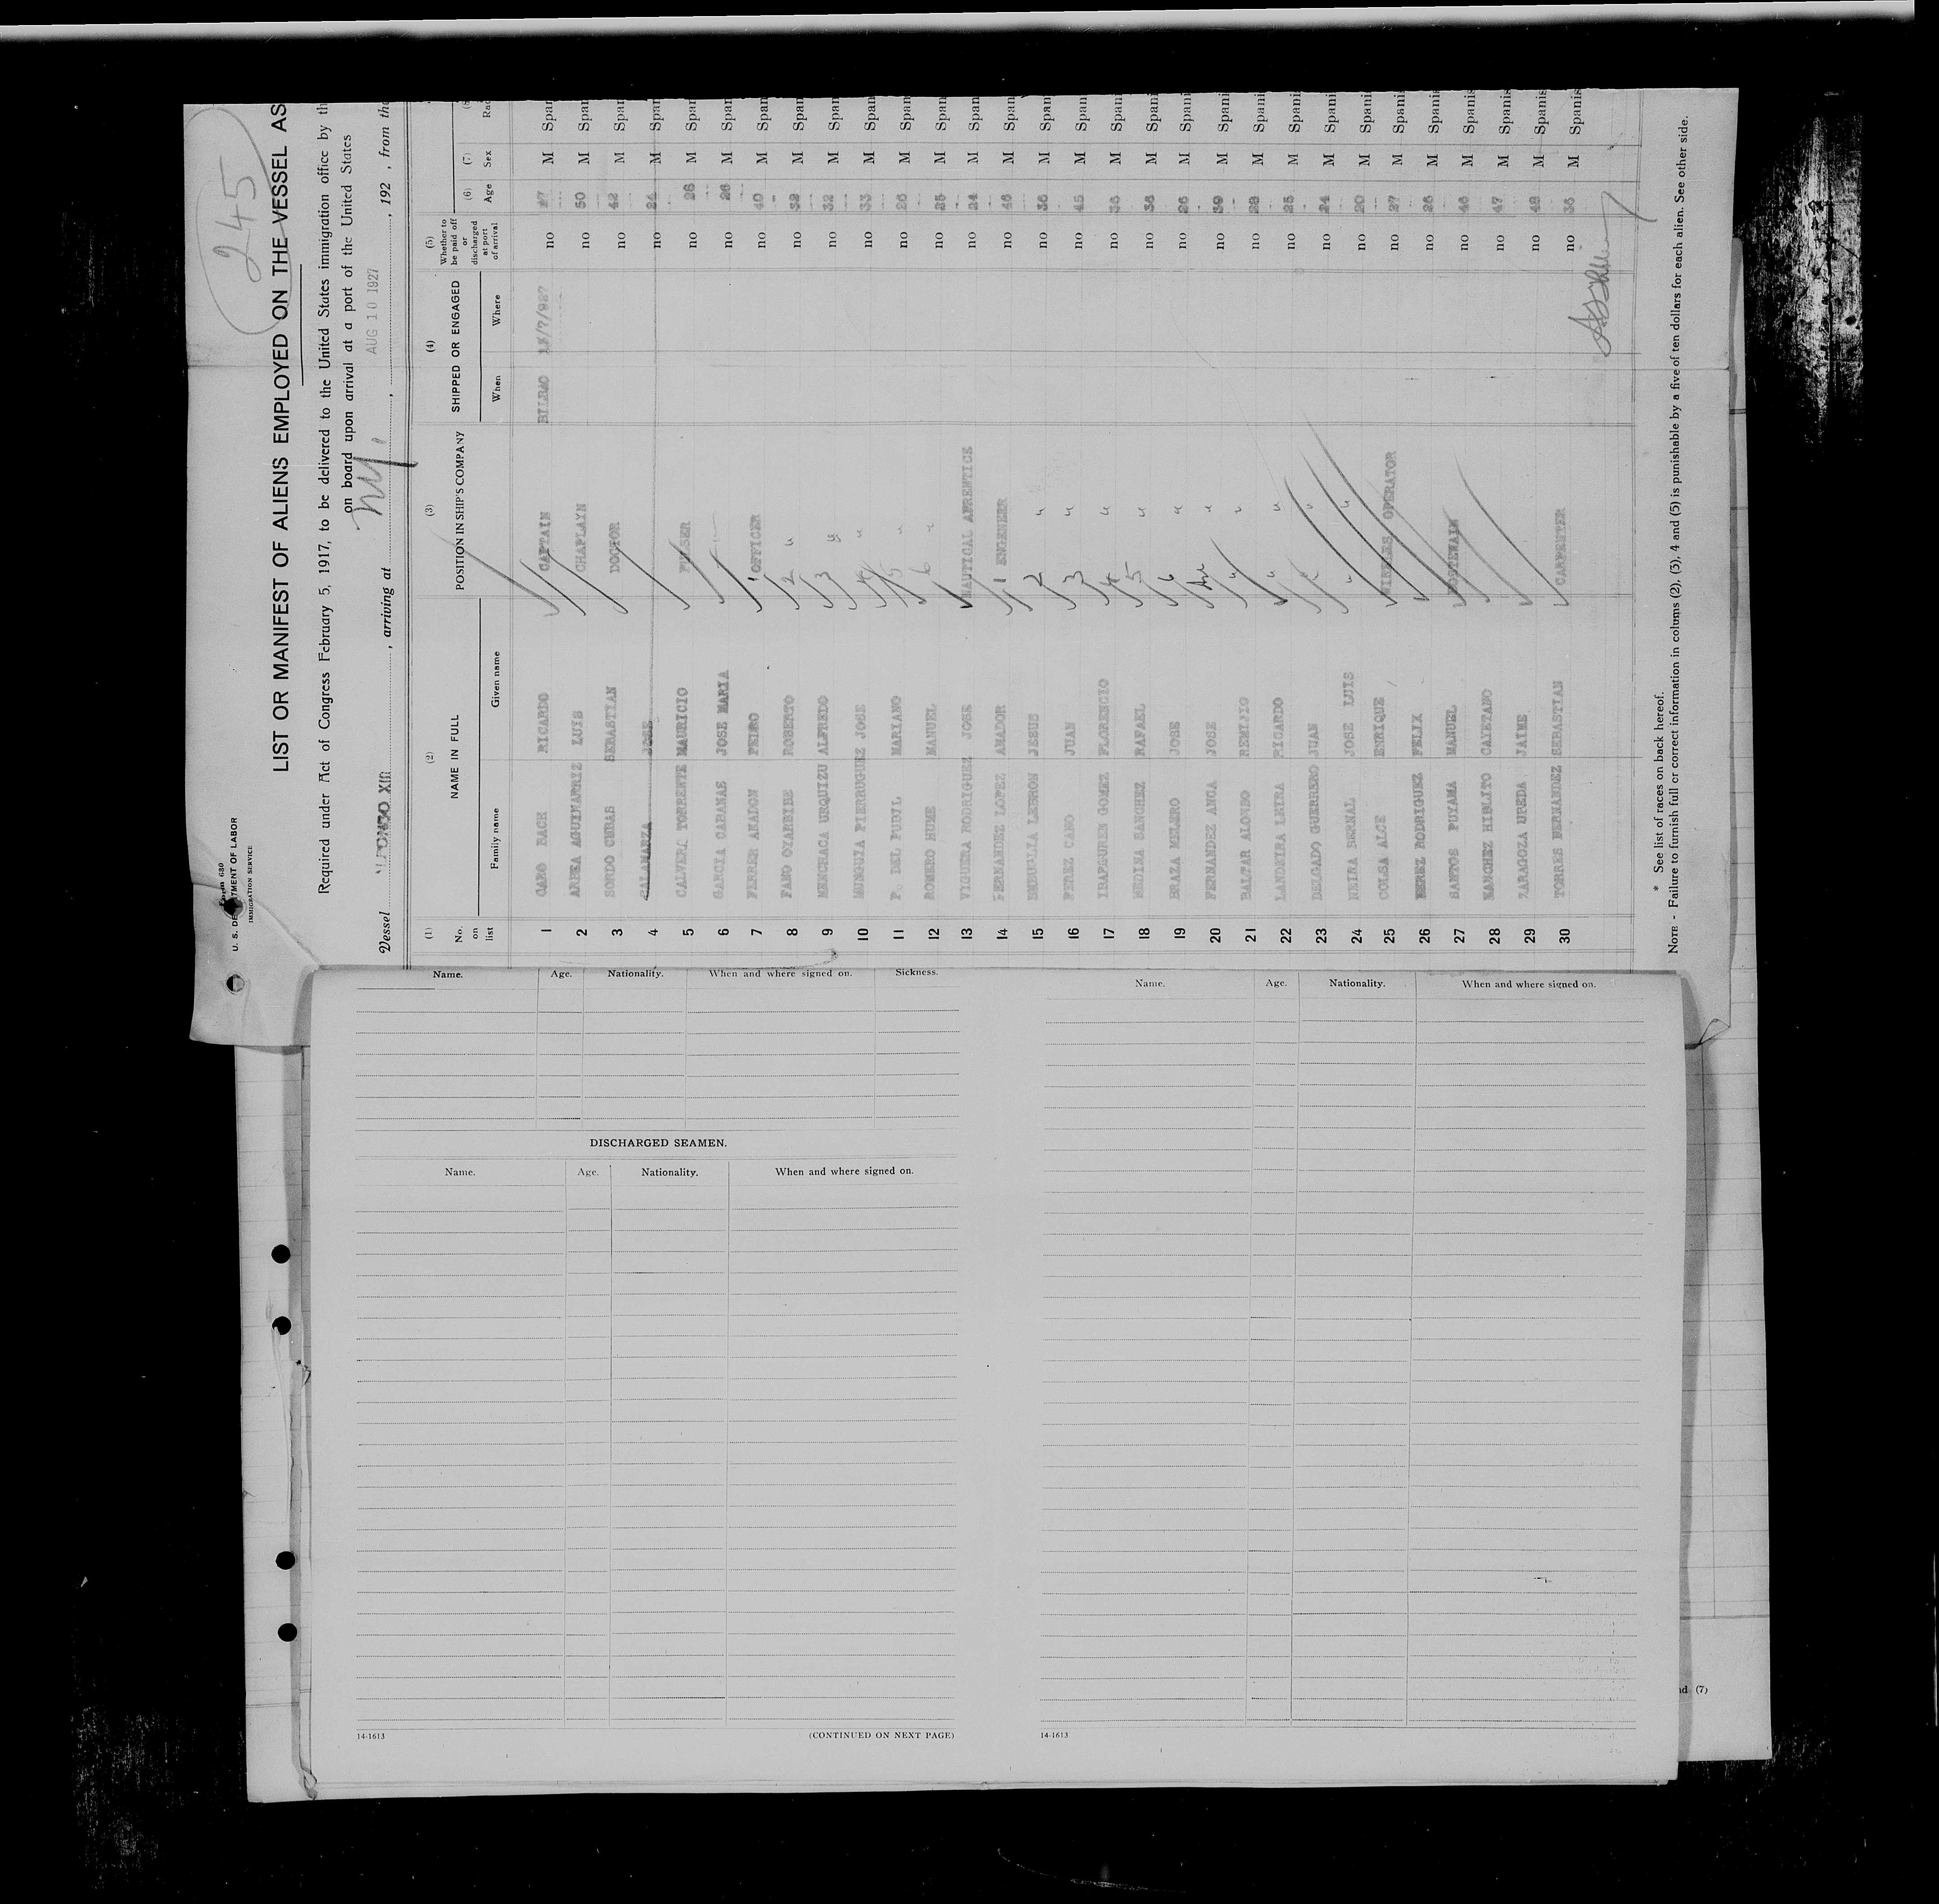 245
Form 680
U. S. DEPARTMENT OF LABOR
IMMIGRATION SERVICE
LIST OR MANIFEST OF ALIENS EMPLOYED ON THE VESSEL AS
Required under Act of Congress February 5, 1917, to be delivered to the United States immigration office by th
on board upon arrival at a port of the United States
Vessel ALFONSO XIII, arriving at NY, AUG 10 1927, 192 , from the
(1) (2) (3) (4) (5) (6) (7) (8
No. on list NAME IN FULL POSITION IN SHIP'S COMPANY SHIPPED OR ENGAGED Whether to be paid off or discharged at port of arrival Age Sex Rac
Family name Given name When Where
1 CARO RACH RICARDO CAPTAIN BILBAO /7/927 no 47 M Span
2 ARBEA AGUINARRIZ LUIS CHAPLAIN no 50 M Span
3 SORDO CUBAS SEBASTIAN DOCTOR no 42 M Span
4 SALAMANZA JOSE no 24 M Span
5 CALVERA TORRENTE MAURICIO PURSER no 28 M Span
6 GARCIA CABANAS JOSE MARIA no 26 M Span
7 FERRER ANADON PEDRO 1 OFFICER no 40 M Span
8 FANO OYARBIDE ROBERTO 2 " no 32 M Span
9 MENCHACA URQUIZU ALFREDO 3 " no 32 M Span
10 MUNGUIA PIERRUGUEZ JOSE 4 " no 33 M Span
11 P. DEL PUBIL MARIANO 5 " no 26 M Span
12 ROMERO HUME MANUEL 6 " no 25 M Span
13 VIGUERA RODRIGUEZ JOSE NAUTICAL APRENTICE no 24 M Span
14 FERNANDEZ LOPEZ AMADOR 1 ENGENEER no 46 M Span
15 LEBRON JESUS 2 " no 36 M Span
16 PEREZ CANO JUAN 3 " no 45 M Spani
17 IBARGUREN GOMEZ FLORENCIO 4 " no 35 M Spani
18 MEDINA SANCHEZ RAFAEL 5 " no 36 M Spani
19 BRAZA MELERO JOSE 6 " no 26 M Spani
20 FERNANDEZ ANCA JOSE " no 30 M Spani
21 BALTAR ALONSO REMIJIO " " no 28 M Spani
22 LANDEIRA LEIRA RICARDO " " no 25 M Spani
23 DELGADO GUERRERO JUAN " " no 24 M Spani
24 NEIRA BERNAL JOSE LUIS " " no 20 M Spani
25 COLSA ALCE ENRIQUE WIRELES OPERATOR no 27 M Spanis
26 PEREZ RODRIGUEZ FELIX no 26 M Spanis
27 SANTOS PUYAMA MANUEL BOSTEWAIN no 46 M Spanis
28 SANCHEZ HIBLITO CAYETANO no 47 M Spanis
29 ZARAGOZA UREDA JAIME no 48 M Spanis
30 TORRES FERNANDEZ SEBASTIAN CARPENTER no 36 M Spanis
* See list of races on back hereof.
NOTE - Failure to furnish full or correct information in colums (2), (3), 4 and (5) is punishable by a five of ten dollars for each alien. See other side.
Name. Age. Nationality. When and where signed on. Sickness.
DISCHARGED SEAMEN.
Name. Age. Nationality. When and where signed on.
14-1613 (CONTINUED ON NEXT PAGE)
Name. Age. Nationality. When and where signed on.
14-1613
nd (7)